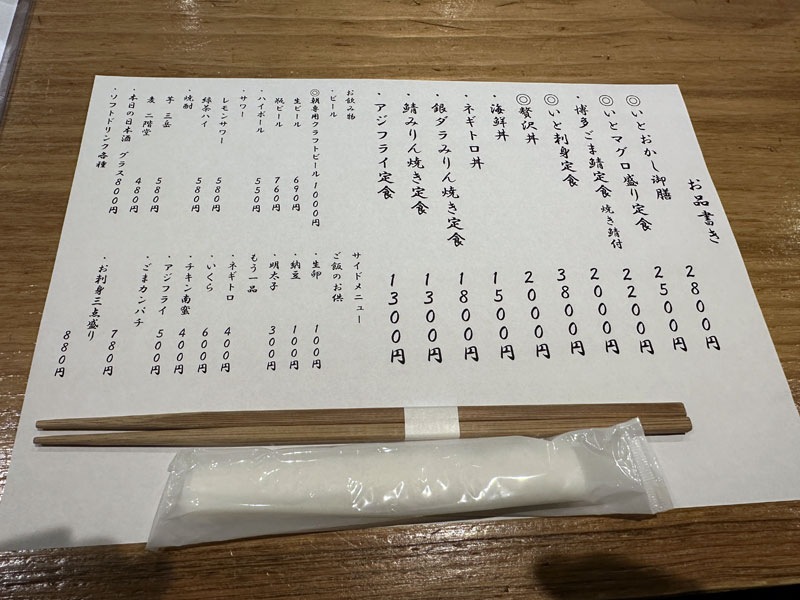 お品書き
◎いとおかし御膳 2800円
◎いとマグロ盛り定食 2500円
・博多ごま鯖定食 焼き鯖付 2200円
◎いと刺身定食 2000円
◎贅沢丼 3800円
・海鮮丼 2000円
・ネギトロ丼 1500円
・銀ダラみりん焼き定食 1800円
・鯖みりん焼き定食 1300円
・アジフライ定食 1300円
お飲み物
・ビール
◎朝専用クラフトビール 1000円
生ビール 690円
瓶ビール 760円
・ハイボール 550円
・サワー
レモンサワー 580円
緑茶ハイ 580円
・焼酎
芋 三岳 580円
麦 二階堂 480円
・本日の日本酒 グラス 800円
・ソフトドリンク各種
サイドメニュー
ご飯のお供
・生卵 100円
・納豆 100円
・明太子 300円
もう一品
・ネギトロ 400円
・いくら 600円
・チキン南蛮 400円
・アジフライ 500円
・ごまカンパチ 780円
・お刺身三点盛り 880円